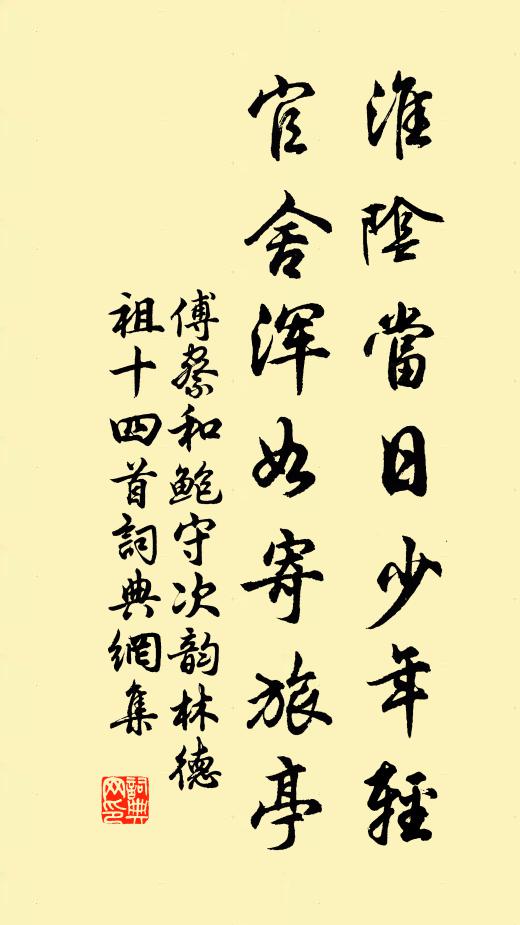 淮陰當日少年輕
官舍渾如寄旅亭
傅察和鮑守次韵林德
祖十四首詞典網集
詞典
网印